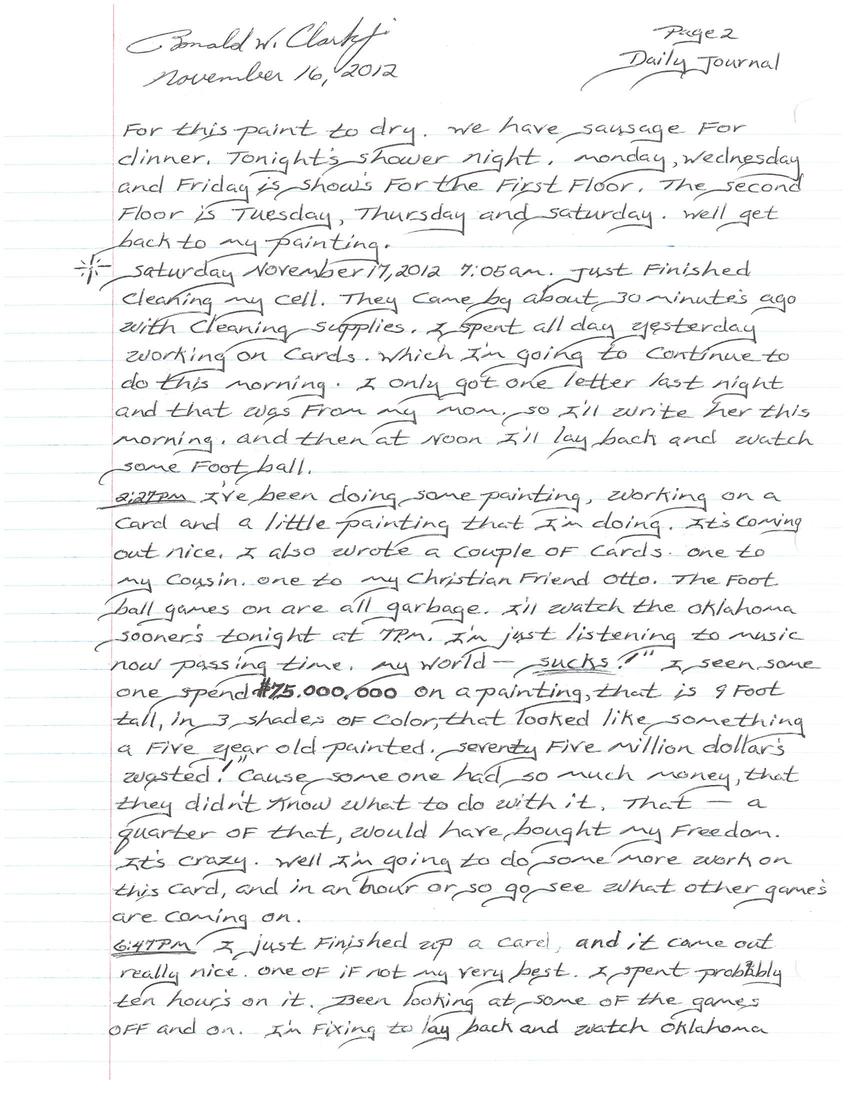 Ronald W. Clark jr
November 16, 2012
Page 2
Daily Journal
For this paint to dry. We have sausage For
dinner. Tonight's shower night. monday, Wednesday
and Friday is show's For the First Floor. The second
Floor is Tuesday, Thursday and saturday. well get
back to my painting.
saturday November 17, 2012 7:05am. Just Finished
Cleaning my cell. They Came by about 30 minute's ago
with Cleaning supplies. I spent all day yesterday
working on Cards. which I'm going to Continue to
do this morning. I only got one letter last night
and that was From my mom. so I'll write her this
morning. and then at Noon I'll lay back and watch
some Foot ball.
2:27PM I've been doing some painting, working on a
Card and a little painting that I'm doing. It's Coming
out nice. I also wrote a Couple OF Cards. one to
my Cousin. one to my Christian Friend Otto. The Foot
ball games on are all garbage. I'll watch the Oklahoma
sooner's tonight at 7PM. I'm just listening to music
now passing time. my world — sucks!" I seen some
one spend $75.000,000 on a painting, that is 9 Foot
tall, in 3 shades OF Color, that looked like something
a Five year old painted. seventy Five million dollar's
wasted!" Cause some one had so much money, that
they didn't know what to do with it. That — a
quarter OF that, would have bought my Freedom.
It's crazy. well I'm going to do some more work on
this Card, and in an hour or so go see what other game's
are coming on.
6:47PM I just Finished up a card, and it came out
really nice. one OF iF not my very best. I spent probably
ten hour's on it. Been looking at some OF the games
OFF and on. I'm Fixing to lay back and watch Oklahoma